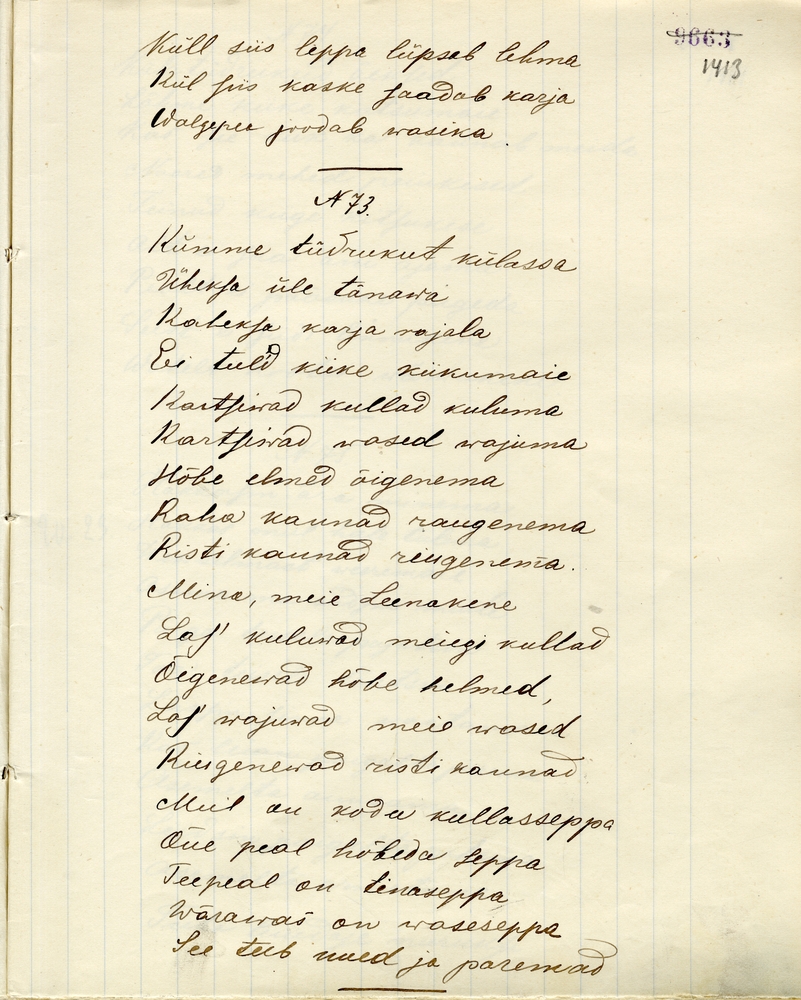 9663
1413
Küll siis leppa lüpsab lehma
Kül siis kaske saadab karja
Walgepea joodab wasika.
N 73.
Kümme tüdrukut külassa
Üheksa üle tänawa
Kaheksa karja rajala
Ei tuld kiike kiikumaie
Kartsiwad kullad kuluma
Kartsiwad wased wajuma
Hõbe elmed õigenema
Raha kannad raugenema
Risti kannad riugenema.
Mina, meie Leenakene
Las' kuluwad meiegi kullad
Õigenewad hõbe helmed,
Las' wajuwad meie wased
Riugenewad risti kannad
Meil on kodu kullasseppa
Õue peal hõbeda seppa
Teepeal on tinaseppa
Wärawas on waseseppa
See teeb uued ja paremad